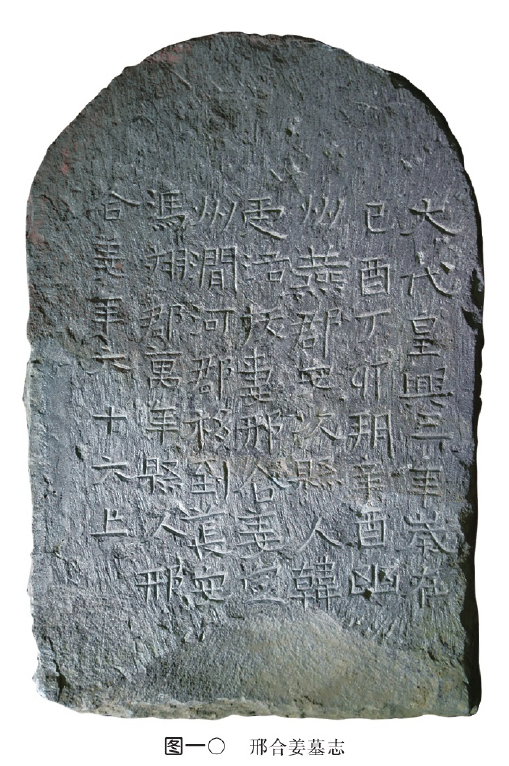 大代皇興三年歲在
己酉丁卯朔辛酉幽
州燕郡安次縣人韓
受洛拔妻邢合姜定
州澗河郡移到長安
馮翊郡萬年縣人邢
合姜年六十六亡
图一〇 邢合姜墓志